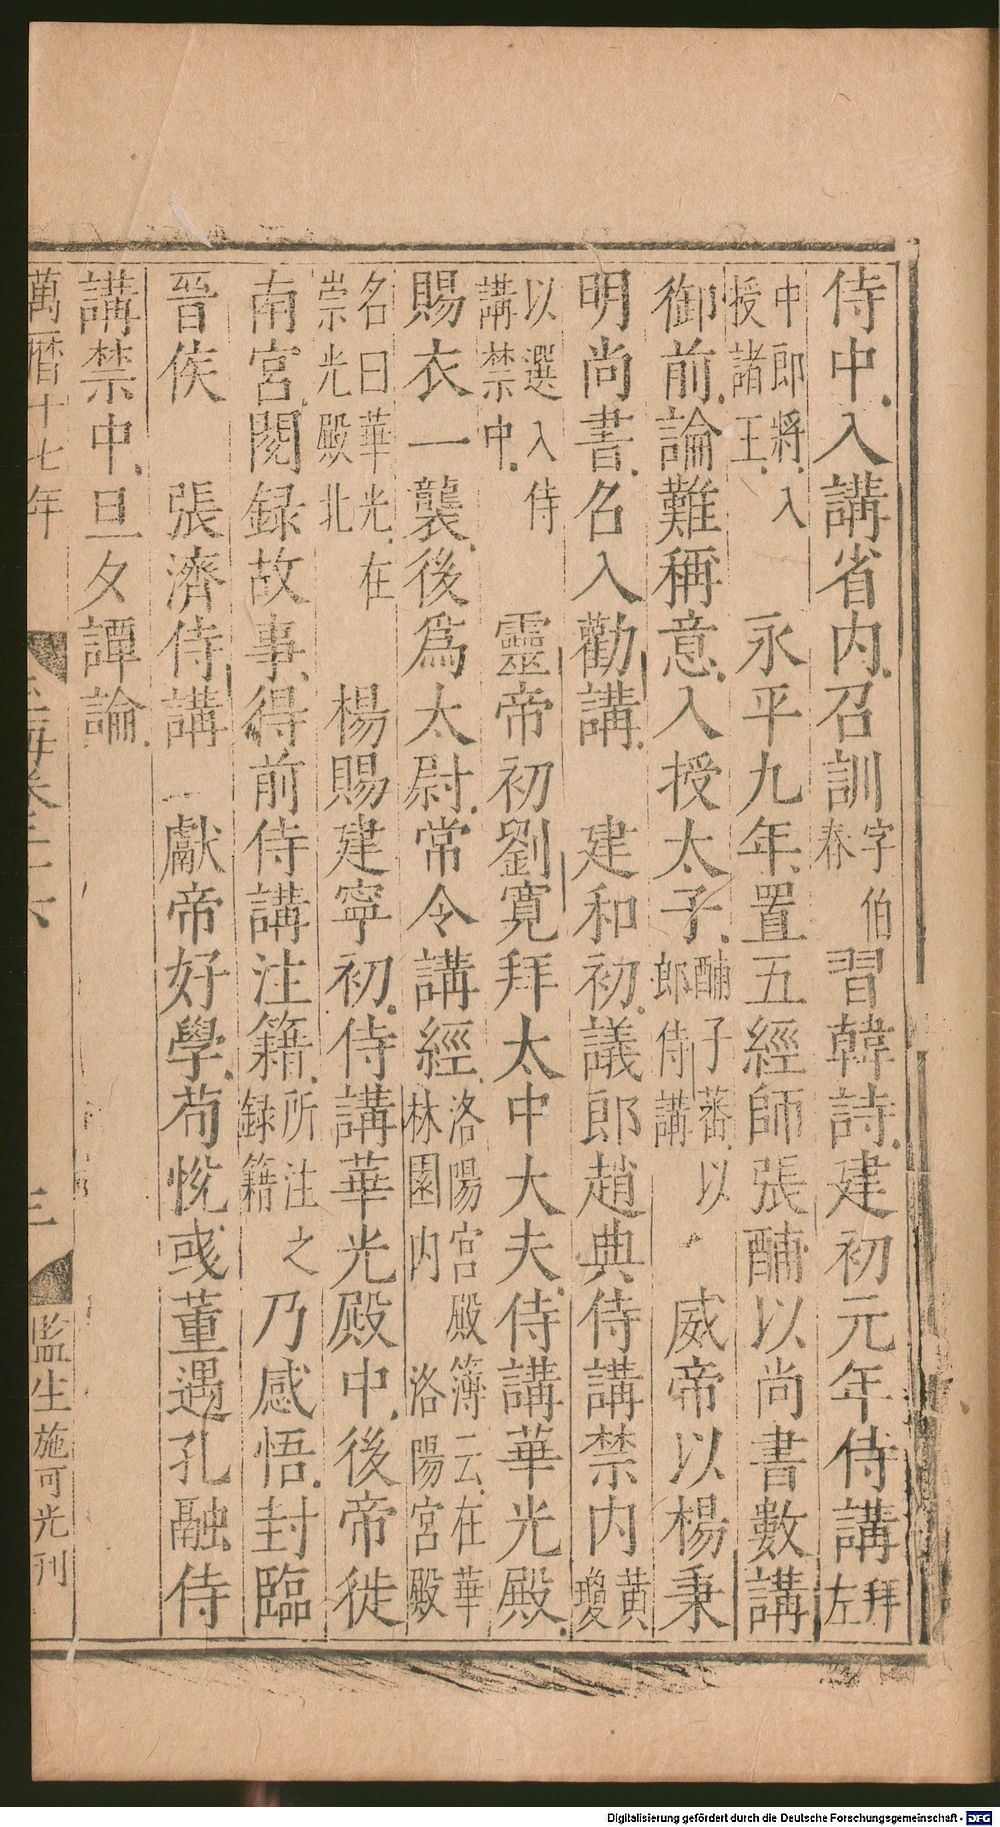 侍中入講省内召訓字伯春習韓詩建初元年侍講拜左
中郎將入授諸王　永平九年置五經師張酺以尚書數講
御前論難稱意入授太子酺子蕃以郎侍講　威帝以楊秉
明尚書名入勸講　建和初議郎趙典侍講禁内黄瓊
以選入侍講禁中　靈帝初劉寬拜太中大夫侍講華光殿
賜衣一襲後爲太尉常令講經洛陽宮殿簿云在華林園内　洛陽宮殿
名曰華光在崇光殿北　楊賜建寧初侍講華光殿中後帝徙
南宮閱録故事得前侍講注籍所注之録籍乃感悟封臨
晉侯　張濟侍講　獻帝好學荀悅彧董遇孔融侍
講禁中旦夕譚論
萬曆十七年
玉海卷二十六
三
監生施可光刊
Digitalisierung gefördert durch die Deutsche Forschungsgemeinschaft - DFG